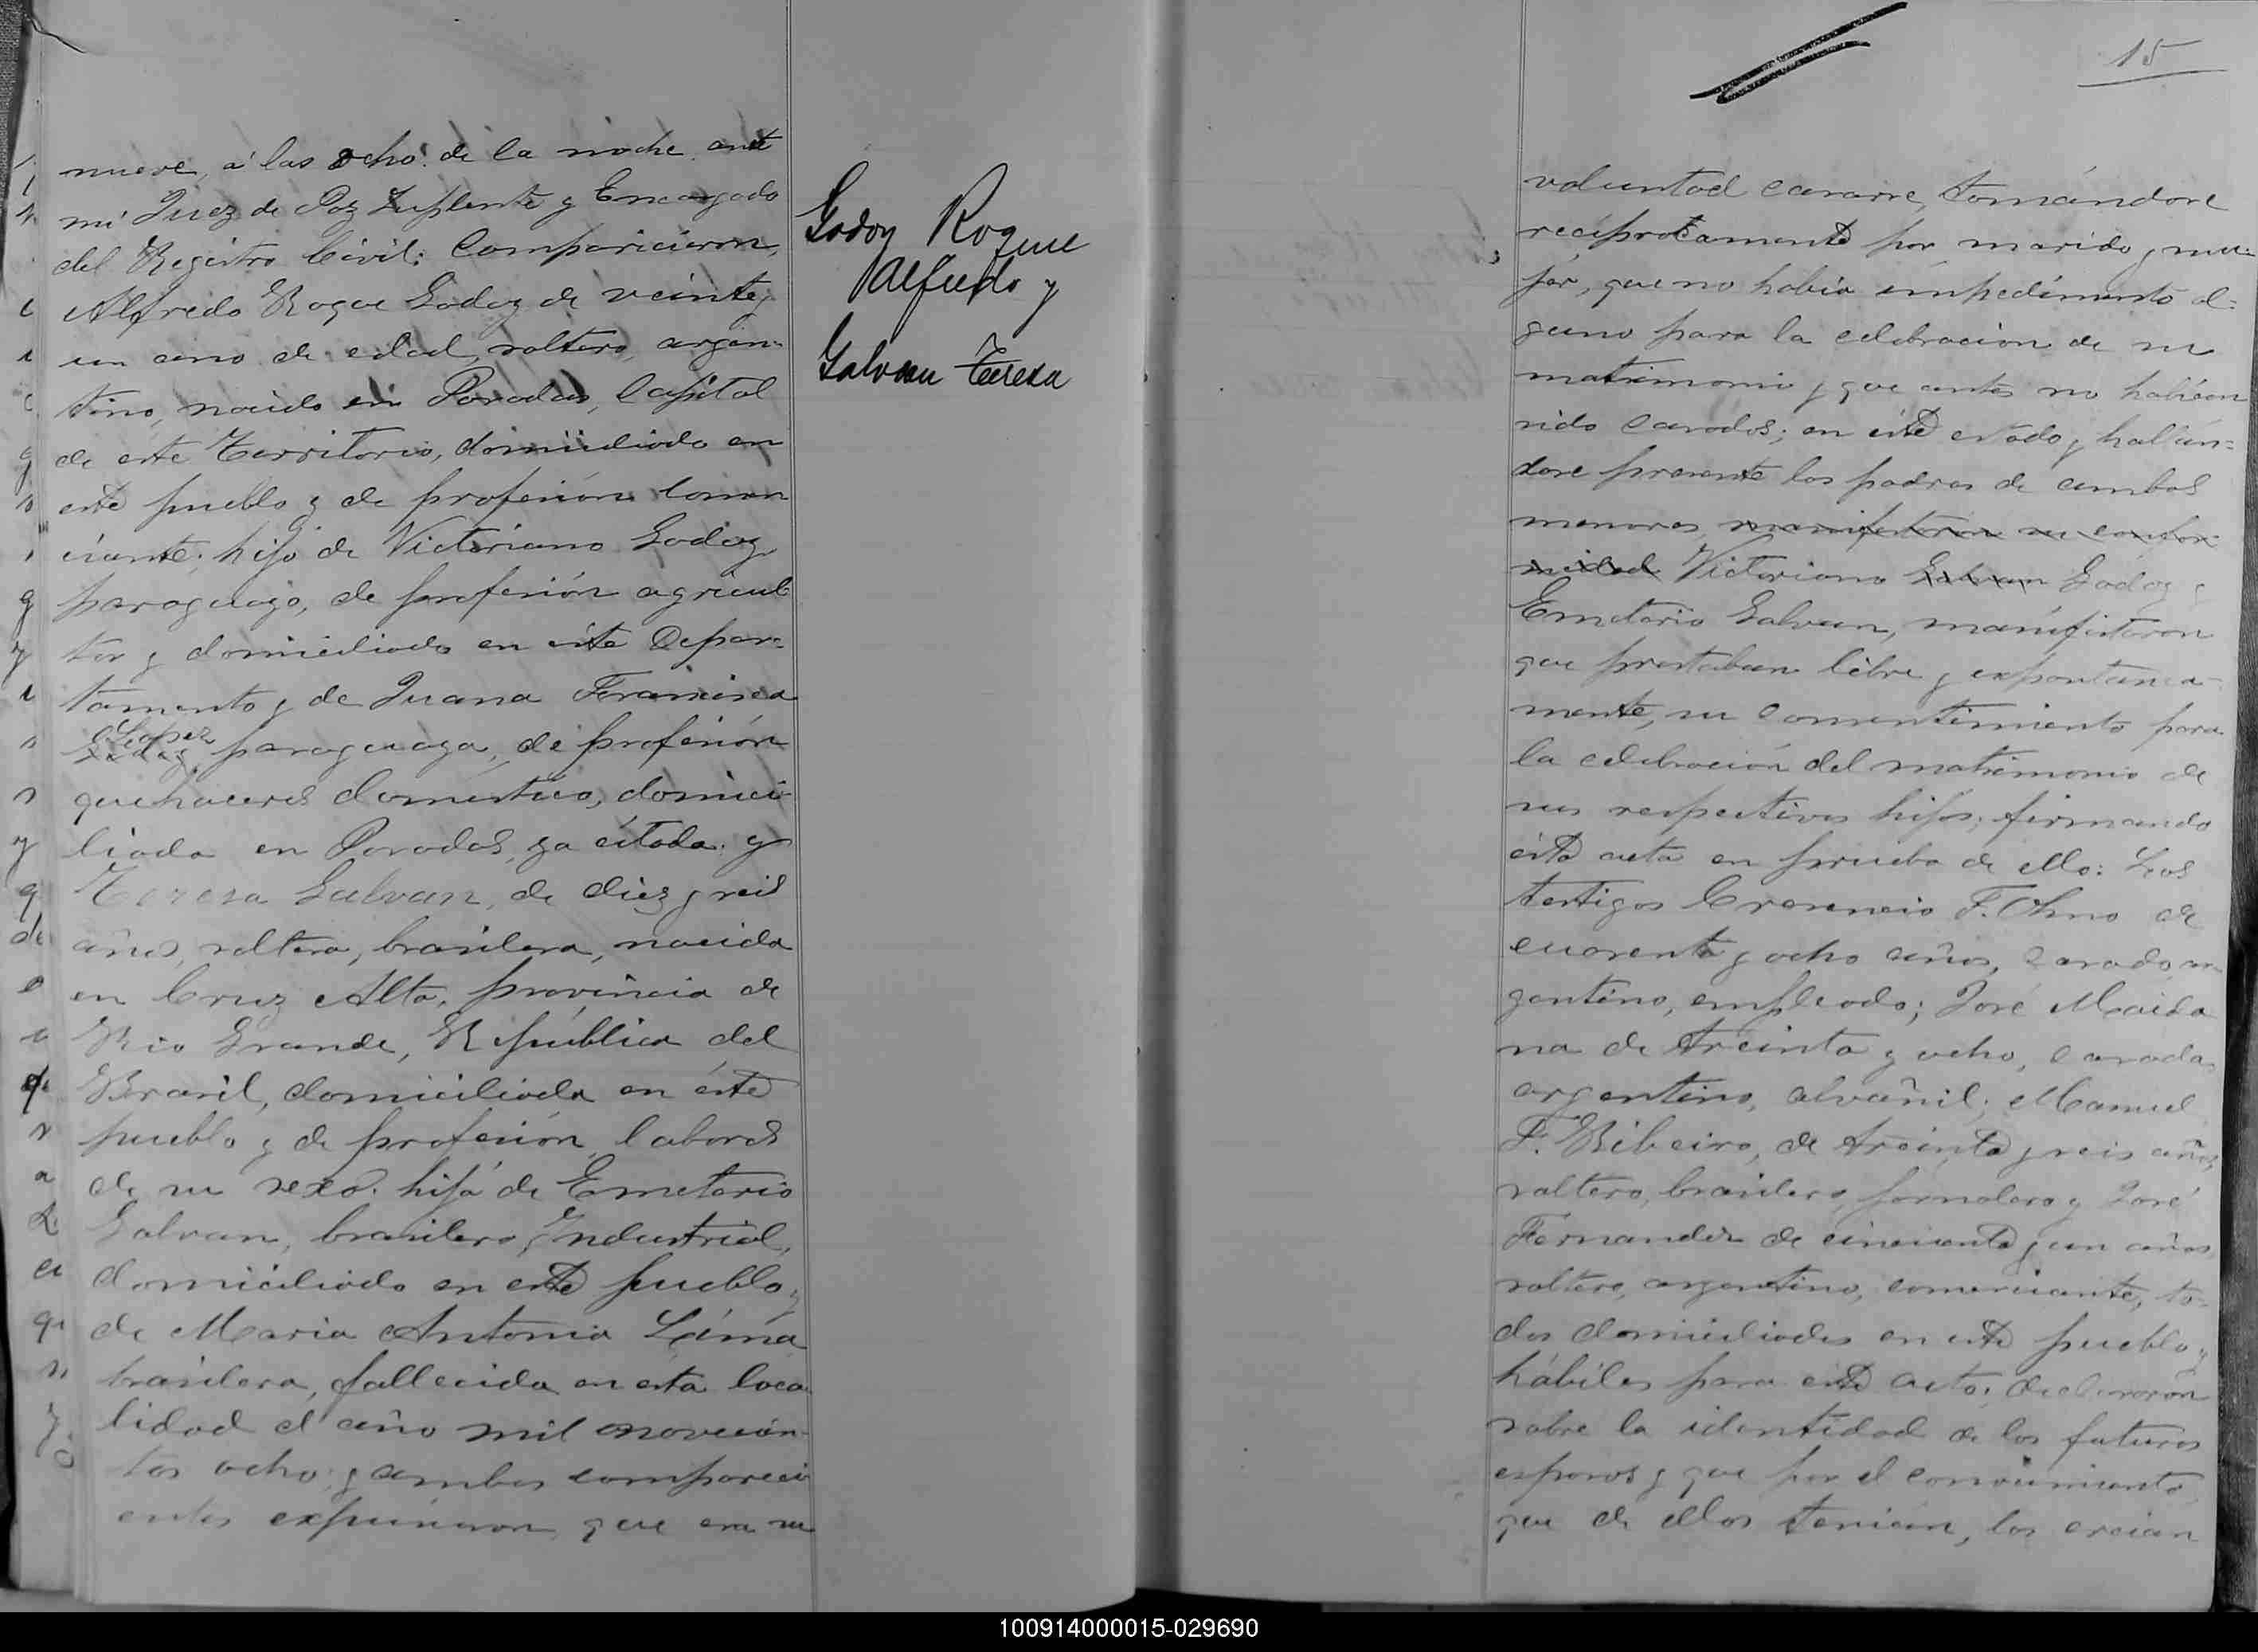 nueve, á las ocho de la noche ante
mi Juez de Paz Suplente y Encargado
del Registro Civil: Comparicieron,
Alfredo Roque Godoy de veinte y
un ano de edad, soltero, argen-
tino, nacido en Posadas, Capital
de este Territorio, domiciliado en
este pueblo y de profesión comer
ciante; hijo de Victoriano Godoy
paraguayo, de profesión agricul
tor y domiciliado en este Depar-
tamento y de Juana Francisca
Lopez
Godoy, paraguaya, de profesión
quehaceres domésticos, domici-
liada en Posadas, ya citada y
Teresa Galvan, de diez y seis
años, soltera, brasilera, nacida
en Cruz Alta, provincia de
Rio Grande, República del
Brasil, domiciliada en éste
pueblo y de profesión, labores
de su sexo. hija de Emeterio
Galvan, brasilero, Industrial,
domiciliado en este pueblo y
de Maria Antonia Láma
brasilera, fallecida en esta loca
lidad el año mil novecien-
tos ocho; y ambos compareci
entes expusieron que era su
Godoy Roque
Alfredo y
Galvan Teresa
15
voluntad casarse, tomándose
reciprocamente por marido y mu-
jer, que no habia impedimento al-
guno para la celebracion de su
matrimonio y que antes no habian
sido casados; en este estado y hallán-
dose presente los padres de ambos
menores, manifestaron su confor-
midad Victoriano Galvan Godoy y
Emeterio Galvan, manifestaron
que prestaban libre y expontanea-
mente, su consentimiento para
la celebración del matrimonio de
sus respectivos hijos; firmando
esta acta en prueba de ello: Los
testigos Crescencio F. de
cuarenta y ocho años, casado, ar-
gentino, empleado; José Maida
na de treinta y ocho, casado,
argentino, alvañil; Manuel
F. Ribeiro, de treinta y seis años
soltero, brasilero, jornalero y José
Fernandez de cincuenta y un años,
soltero, argentino, comerciante, to-
dos domiciliados en este pueblo y
hábiles para este acto; declararon
sobre la identidad de los futuros
esposos y que por el conocimiento
que de ellos tenian, los creian
100914000015-029690